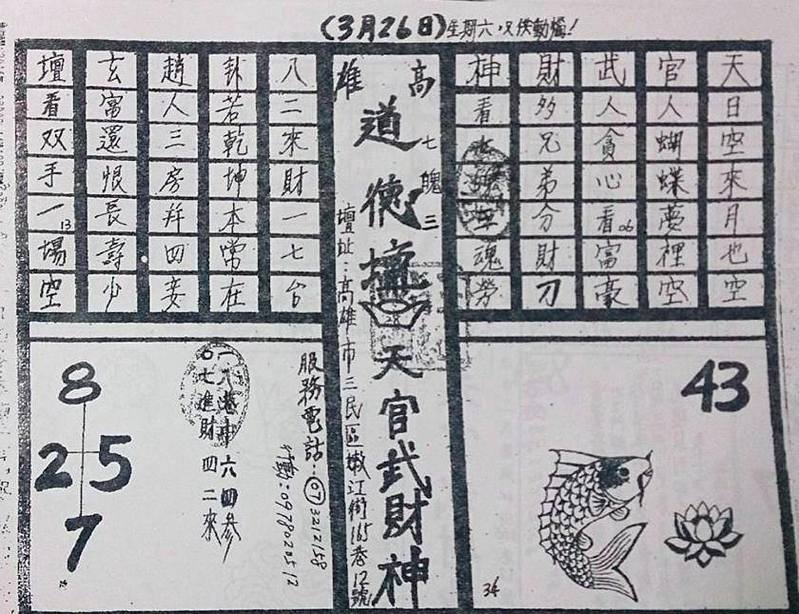 (3月26日)星期六.只供動攜!
天日空來月也空
官人蝴蝶夢裡空
武人貪心看富豪
06
財多兄弟分財刀
神看魂勞
43
34
高雄
七魄三
道德壇天官武財神
壇址:高雄市三民區嫩江街165巷12號
八二來財一七台
卦若乾坤本常在
趙人三房并四妾
玄富還恨長壽少
壇看双手一場空
13
服務電話:(07)3212158
行動:
六四參
七進財四二來
8
2 5
7